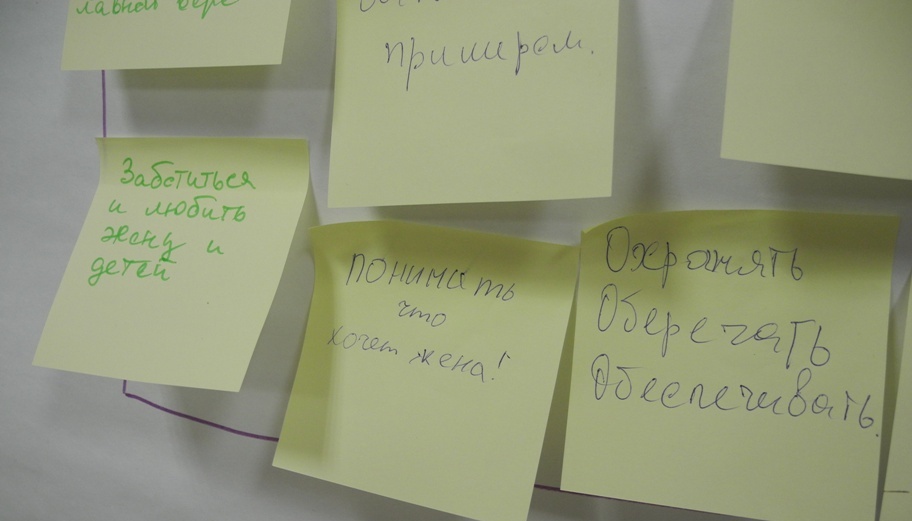 примером.
Забститься
и любить
жену и
детей
понимать
что
хочет жена!
Охранять
Оберегать
Обеспечивать.